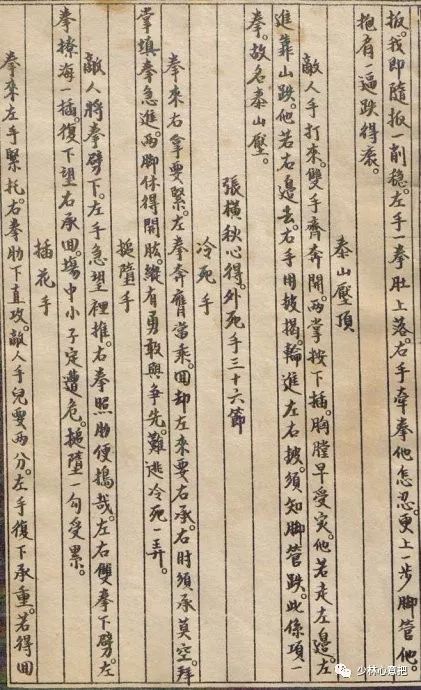 扳。我即隨扳一削穩。左手一拳肚上落。右手牽拳他怎忍。更上一步脚管他。
抱肩一逼跌得忝。
泰山壓頂
敵人手打來。雙手齊奔開。两掌按下插。胸膛早受灾。他若走左邊。左
進靠山跌。他若右邊去。右手用披揭。輪進左右披。須知脚管跌。此係項一
拳。故名泰山壓。
張横秋心得。外死手三十六節
冷死手
拳來右拿要緊。左拳奔膺當乘。回却左來要右承。右肘須承莫空。拜
掌填拳急進。两脚休得開肱。縱有勇敢與争先。難逃冷死一弄。
挺墮手
敵人將拳劈下。左手急望裡推。右拳照肋便搗哉。左右雙拳下劈。左
拳撩海一插。復下望右承回。塲中小子定遭危。挺墮一勾受累。
插花手
拳來左手緊托。右拳肋下直攻。敵人手兒要两分。左手復下承重。若得回
少林心意把